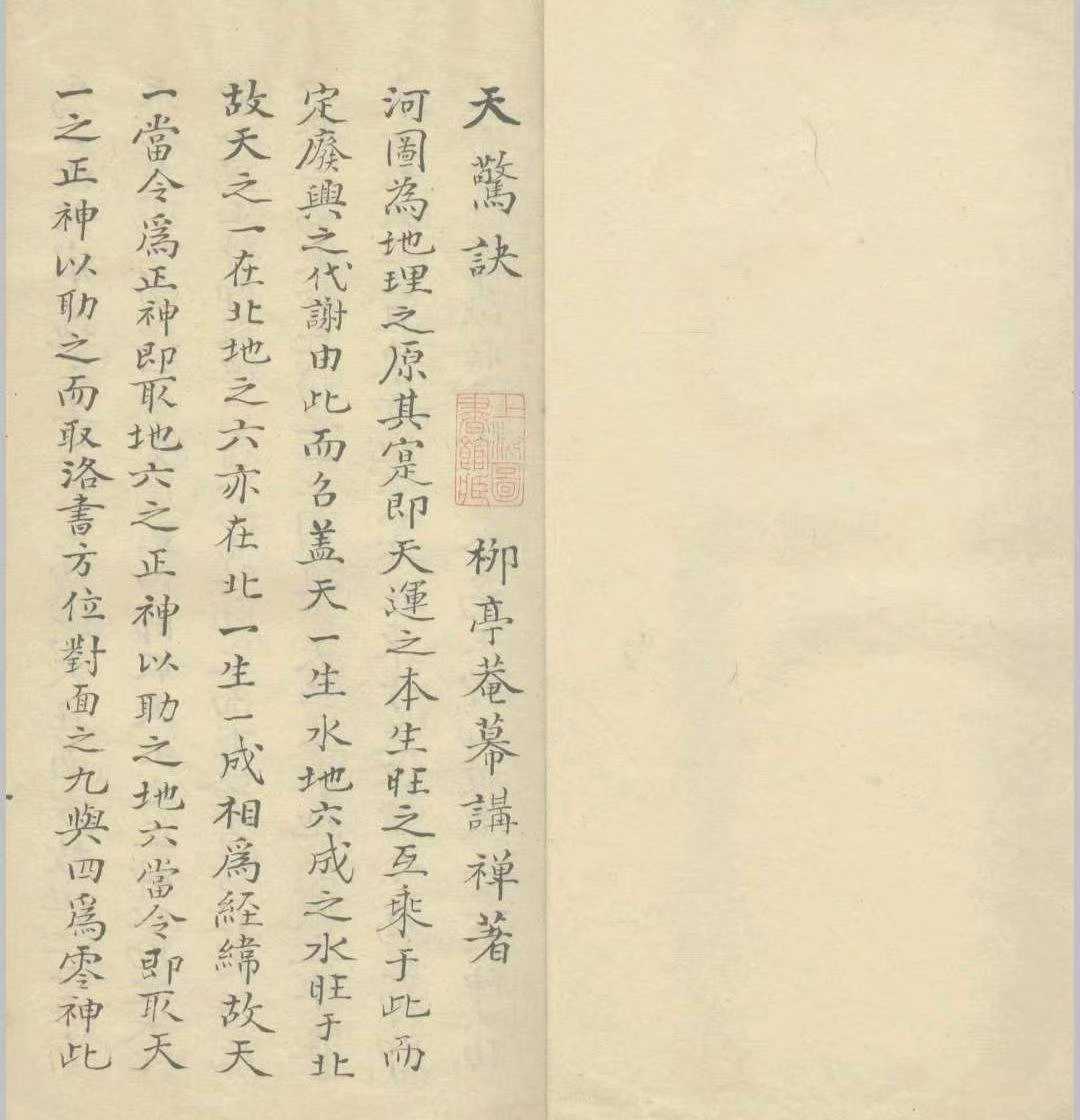 天驚訣 柳亭菴幕講禅著
上海圖書館藏
河圖為地理之原其寔即天運之本生旺之互乘于此而
定廢興之代謝由此而名盖天一生水地六成之水旺于北
故天之一在北地之六亦在北一生一成相爲経緯故天
一當令爲正神即取地六之正神以助之地六當令即取天
一之正神以助之而取洛書方位對面之九與四爲零神此